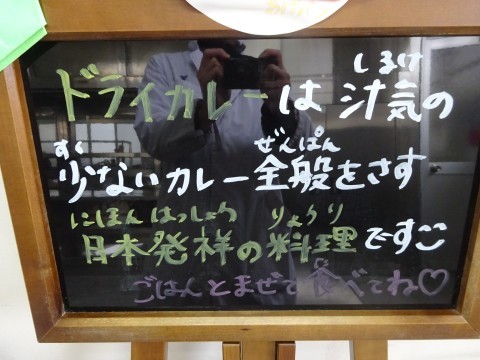 ドライカレーは汁気の
しるけ
少ないカレー全般をさす
すく ぜんぱん
日本発祥の料理ですこ
にほんはっしょう りょうり
ごはんとまぜて食べてね♡
た